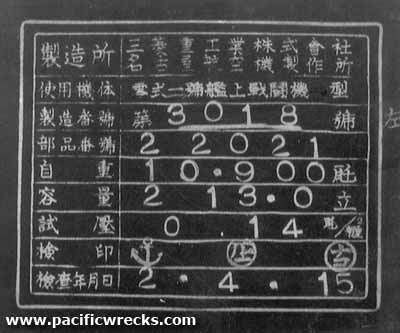 製造所 三菱重工業株式會社
名古屋航空機製作所
使用機体 零式一號艦上戰鬪機 型
製造番號 第 3018 號
部品番號 2 2021
自重 10.900 瓩
容量 213.0 立
試壓 0.14 瓩/糎²
検印 吉
檢查年月日 2.4.15
左
www.pacificwrecks.com